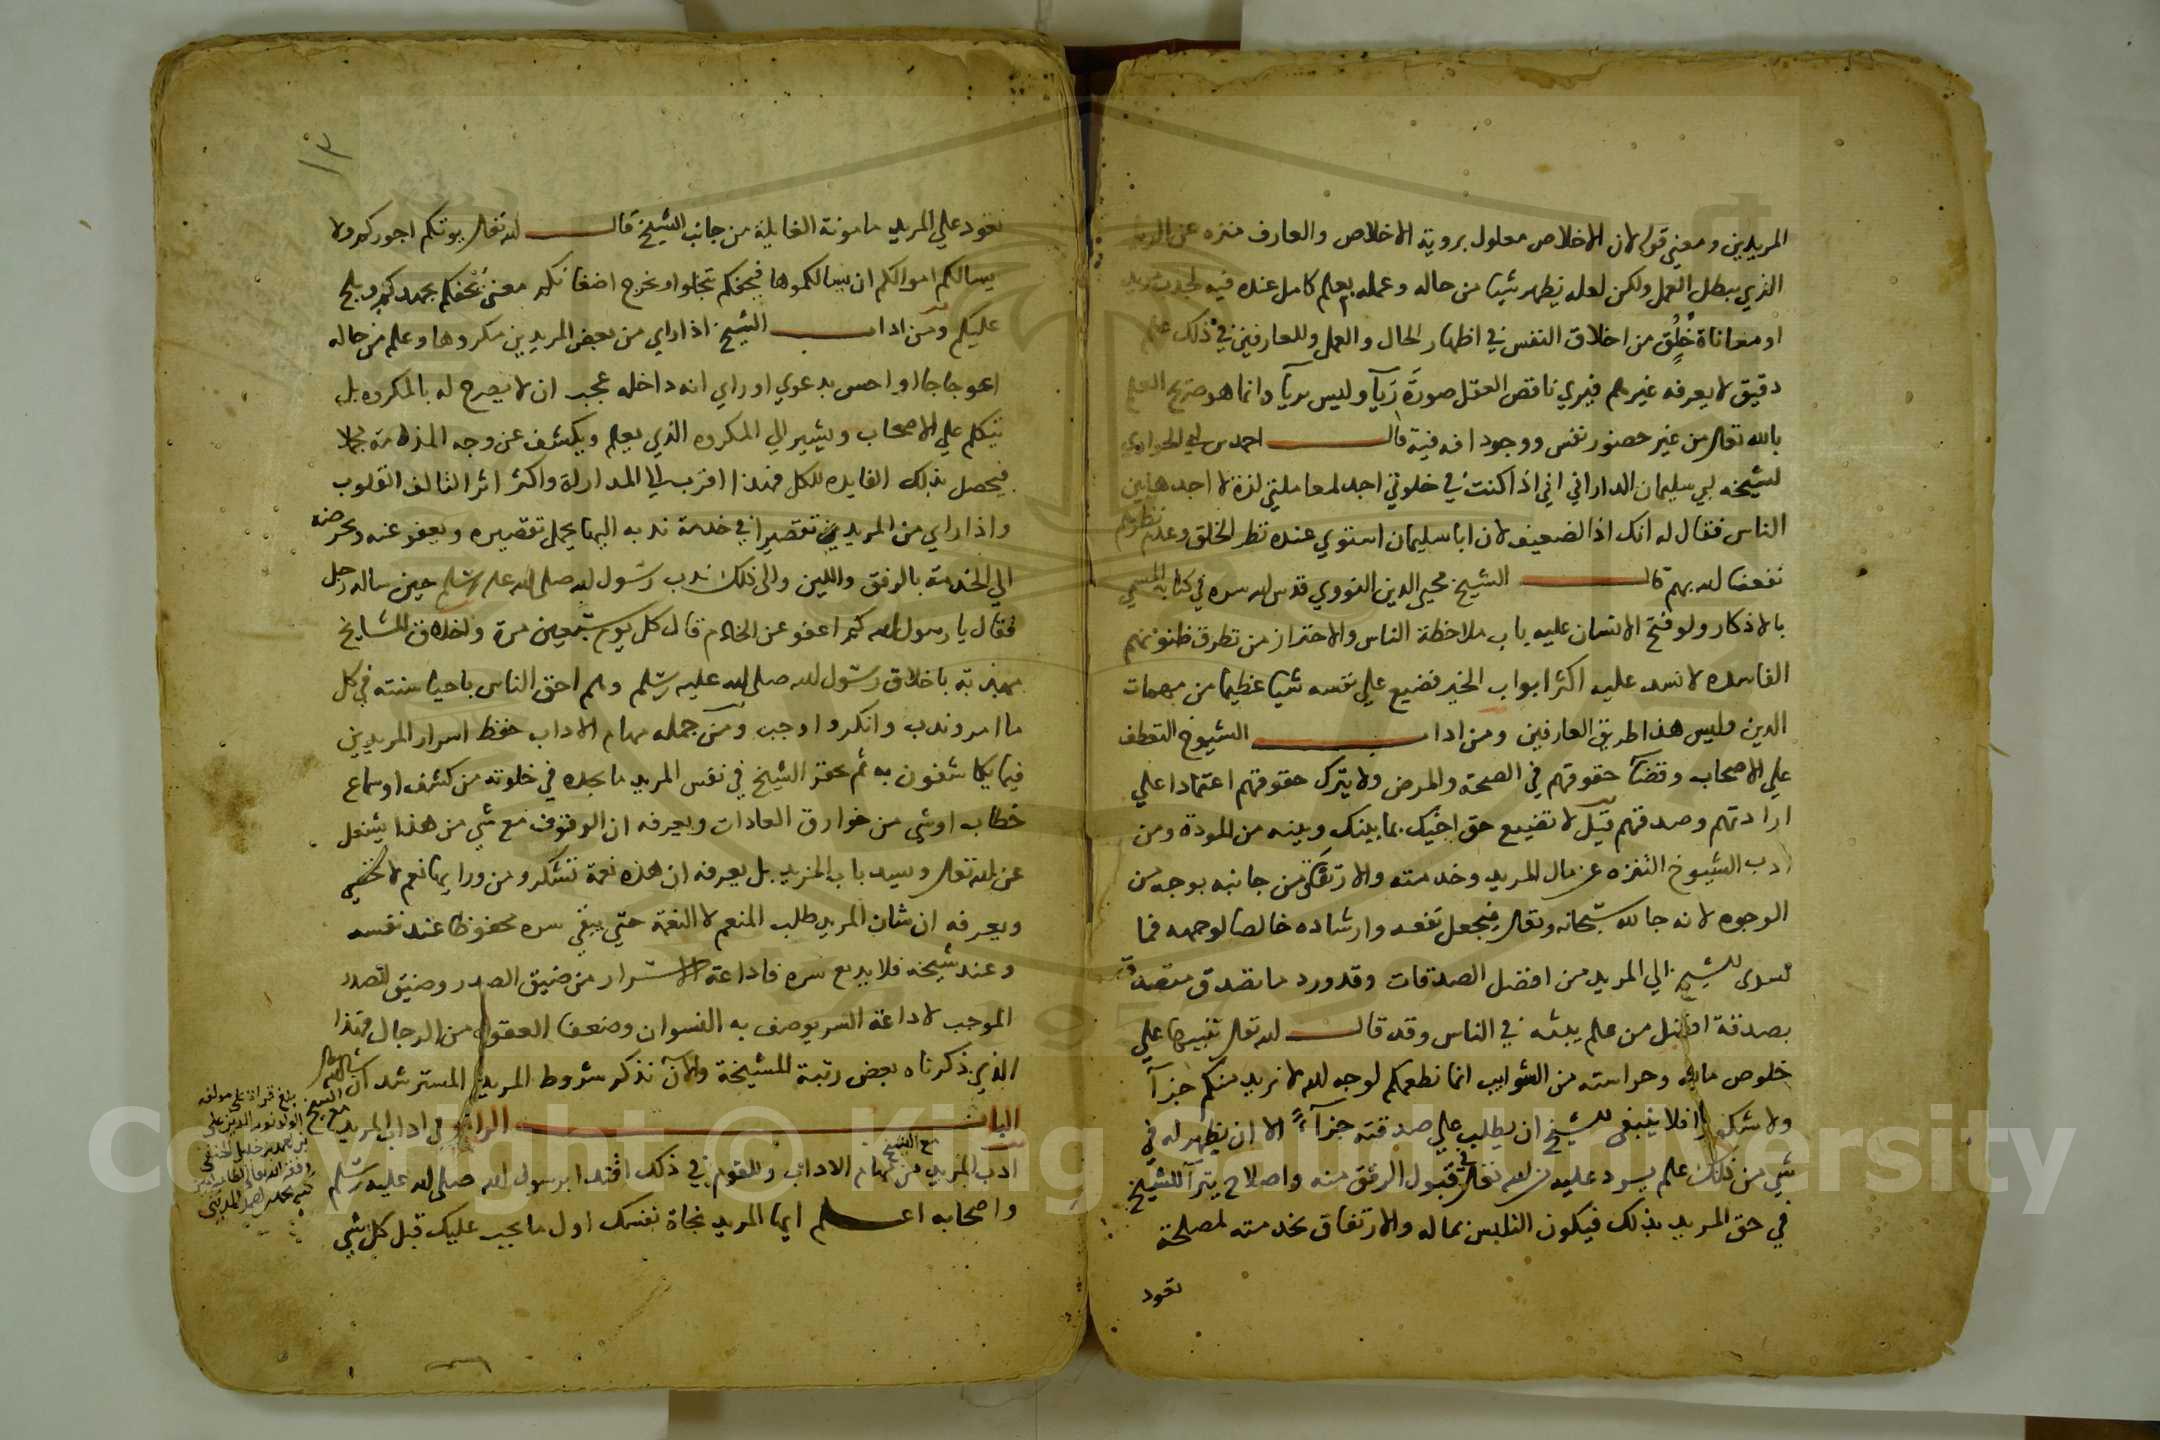 المريدين ومعني قوله لان الاخلاص معلول بروية الاخلاص والعارف منزه عن الريا
الذي يبطل العمل ولكن لعله يظهر شيا من حاله وعمله بعلم كامل عنده فيه لجذب مريد
او معاناة خلق من اخلاق النفس في اظهار الحال والعمل وللعارفين في ذلك علم
دقيق لا يعرفه غيرهم فيري ناقص العقل صورة ريآ وليس بريآ وانما هو صريح العلم
بالله تعالى من غير حضور نفس ووجود افه فيه قال احمد بن ابي الحواري
لشيخه ابي سليمان الداراني اني اذا كنت في خلوتي اجد لمعاملتي لذة لا اجدها بين
الناس فقال له انك اذا لضعيف لان ابا سليمان استوي عنده نظر الخلق وعدم نظرهم
نفعنا الله بهم قال الشيخ محيي الدين النووي قدس الله سره في كتابه المسمي
بالاذكار ولو فتح الانسان عليه باب ملاحظة الناس والاحتراز من تطرق ظنونهم
الفاسده لانسد عليه اكثر ابواب الخير فضيع علي نفسه شيا عظيما من مهمات
الدين وليس هذا طريق العارفين ومن اداب الشيوخ التعطف
علي الاصحاب وقضآ حقوقهم في الصحة والمرض ولا يترك حقوقهم اعتمادا علي
ارادتهم وصدقهم قيل لا تضيع حق اخيك بما بينك وبينه من المودة ومن
ادب الشيوخ التنزه عن مال المريد وخدمته والارتفاق من جانبه بوجه من
الوجوه لانه جا لله سبحانه وتعالى فيجعل نفعه وارشاده خالصا لوجهه فما
يسدى الشيخ الي المريد من افضل الصدقات وقد ورد ما تصدق متصدق
بصدقة افضل من علم يبثه في الناس وقد قال الله تعالى تنبيها علي
خلوص ما لله وحراسته من الشوايب انما نطعمكم لوجه الله لا نريد منكم جزآ
ولا شكورا فلا ينبغي للشيخ ان يطلب علي صدقته جزآء الا ان يظهر له في
شي من ذلك علم يرد عليه من الله تعالى في قبول الرفق منه واصلاح يترآ للشيخ
في حق المريد بذلك فيكون التلبس بماله والارتفاق بخدمته لمصلحة
تعود
١٣
تعود علي المريد مامونة الغايلة من جانب الشيخ قال الله تعالى يوتكم اجوركم ولا
يسالكم اموالكم ان يسالكموها فيحفكم تبخلوا ويخرج اضغانكم معني يحفكم يجهدكم ويلح
عليكم ومن اداب الشيخ اذا راي من بعض المريدين مكروها وعلم من حاله
اعوجاجا او احس بدعوي او راي انه داخله عجب ان لا يصرح له بالمكروه بل
يتكلم علي الاصحاب ويشير الي المكروه الذي يعلم ويكشف عن وجه المذمة مجملا
فيحصل بذلك الفايده للكل فهذا اقرب الي المداراة واكثر اثر التالف القلوب
واذا راي من المريدين تقصيرا في خدمة ندبه اليها يحمل تقصيره ويعفو عنه ويحرضه
الي الخدمة بالرفق واللين والى ذلك ندب رسول الله صلى الله عليه وسلم حين ساله رجل
فقال يا رسول الله كم اعفو عن الخادم قال كل يوم سبعين مرة واخلاق المشايخ
مهذبة باخلاق رسول الله صلى الله عليه وسلم وهم احق الناس باحيا سنته في كل
ما امر وندب وانكر واوجب ومن جمله مهام الاداب حفظ اسرار المريدين
فيما يكاشفون به ثم يحقر الشيخ في نفس المريد ما يجده في خلوته من كشف او سماع
خطاب او شي من خوارق العادات ويعرفه ان الوقوف مع شي من هذا يشغل
عن الله تعالى ويسد باب المزيد بل يعرفه ان هذه نعمة تشكر ومن ورايها نعم لا تحصي
ويعرفه ان شان المريد طلب المنعم لا النعمة حتي يبقي سره محفوظا عند نفسه
وعند شيخه فلا يذيع سره فاذاعة الاسرار من ضيق الصدر وضيق الصدر
الموجب لاذاعة السر يوصف به النسوان وضعفا العقول من الرجال فهذا
الذي ذكرناه بعض رتبة المشيخة والان نذكر شروط المريد المسترشد ان شا الله تعالى
الباب الرابع في اداب المريد مع الشيخ
ادب المريد مع الشيخ من مهام الاداب وللقوم في ذلك اقتدا برسول الله صلى الله عليه وسلم
واصحابه اعلم ايها المريد نجاة نفسك اول ما يجب عليك قبل كل شي
بلغ قراة على مولفه
الولد نور الدين علي
بن محمد بن خليل الحنفي
Copyright © King Saud University